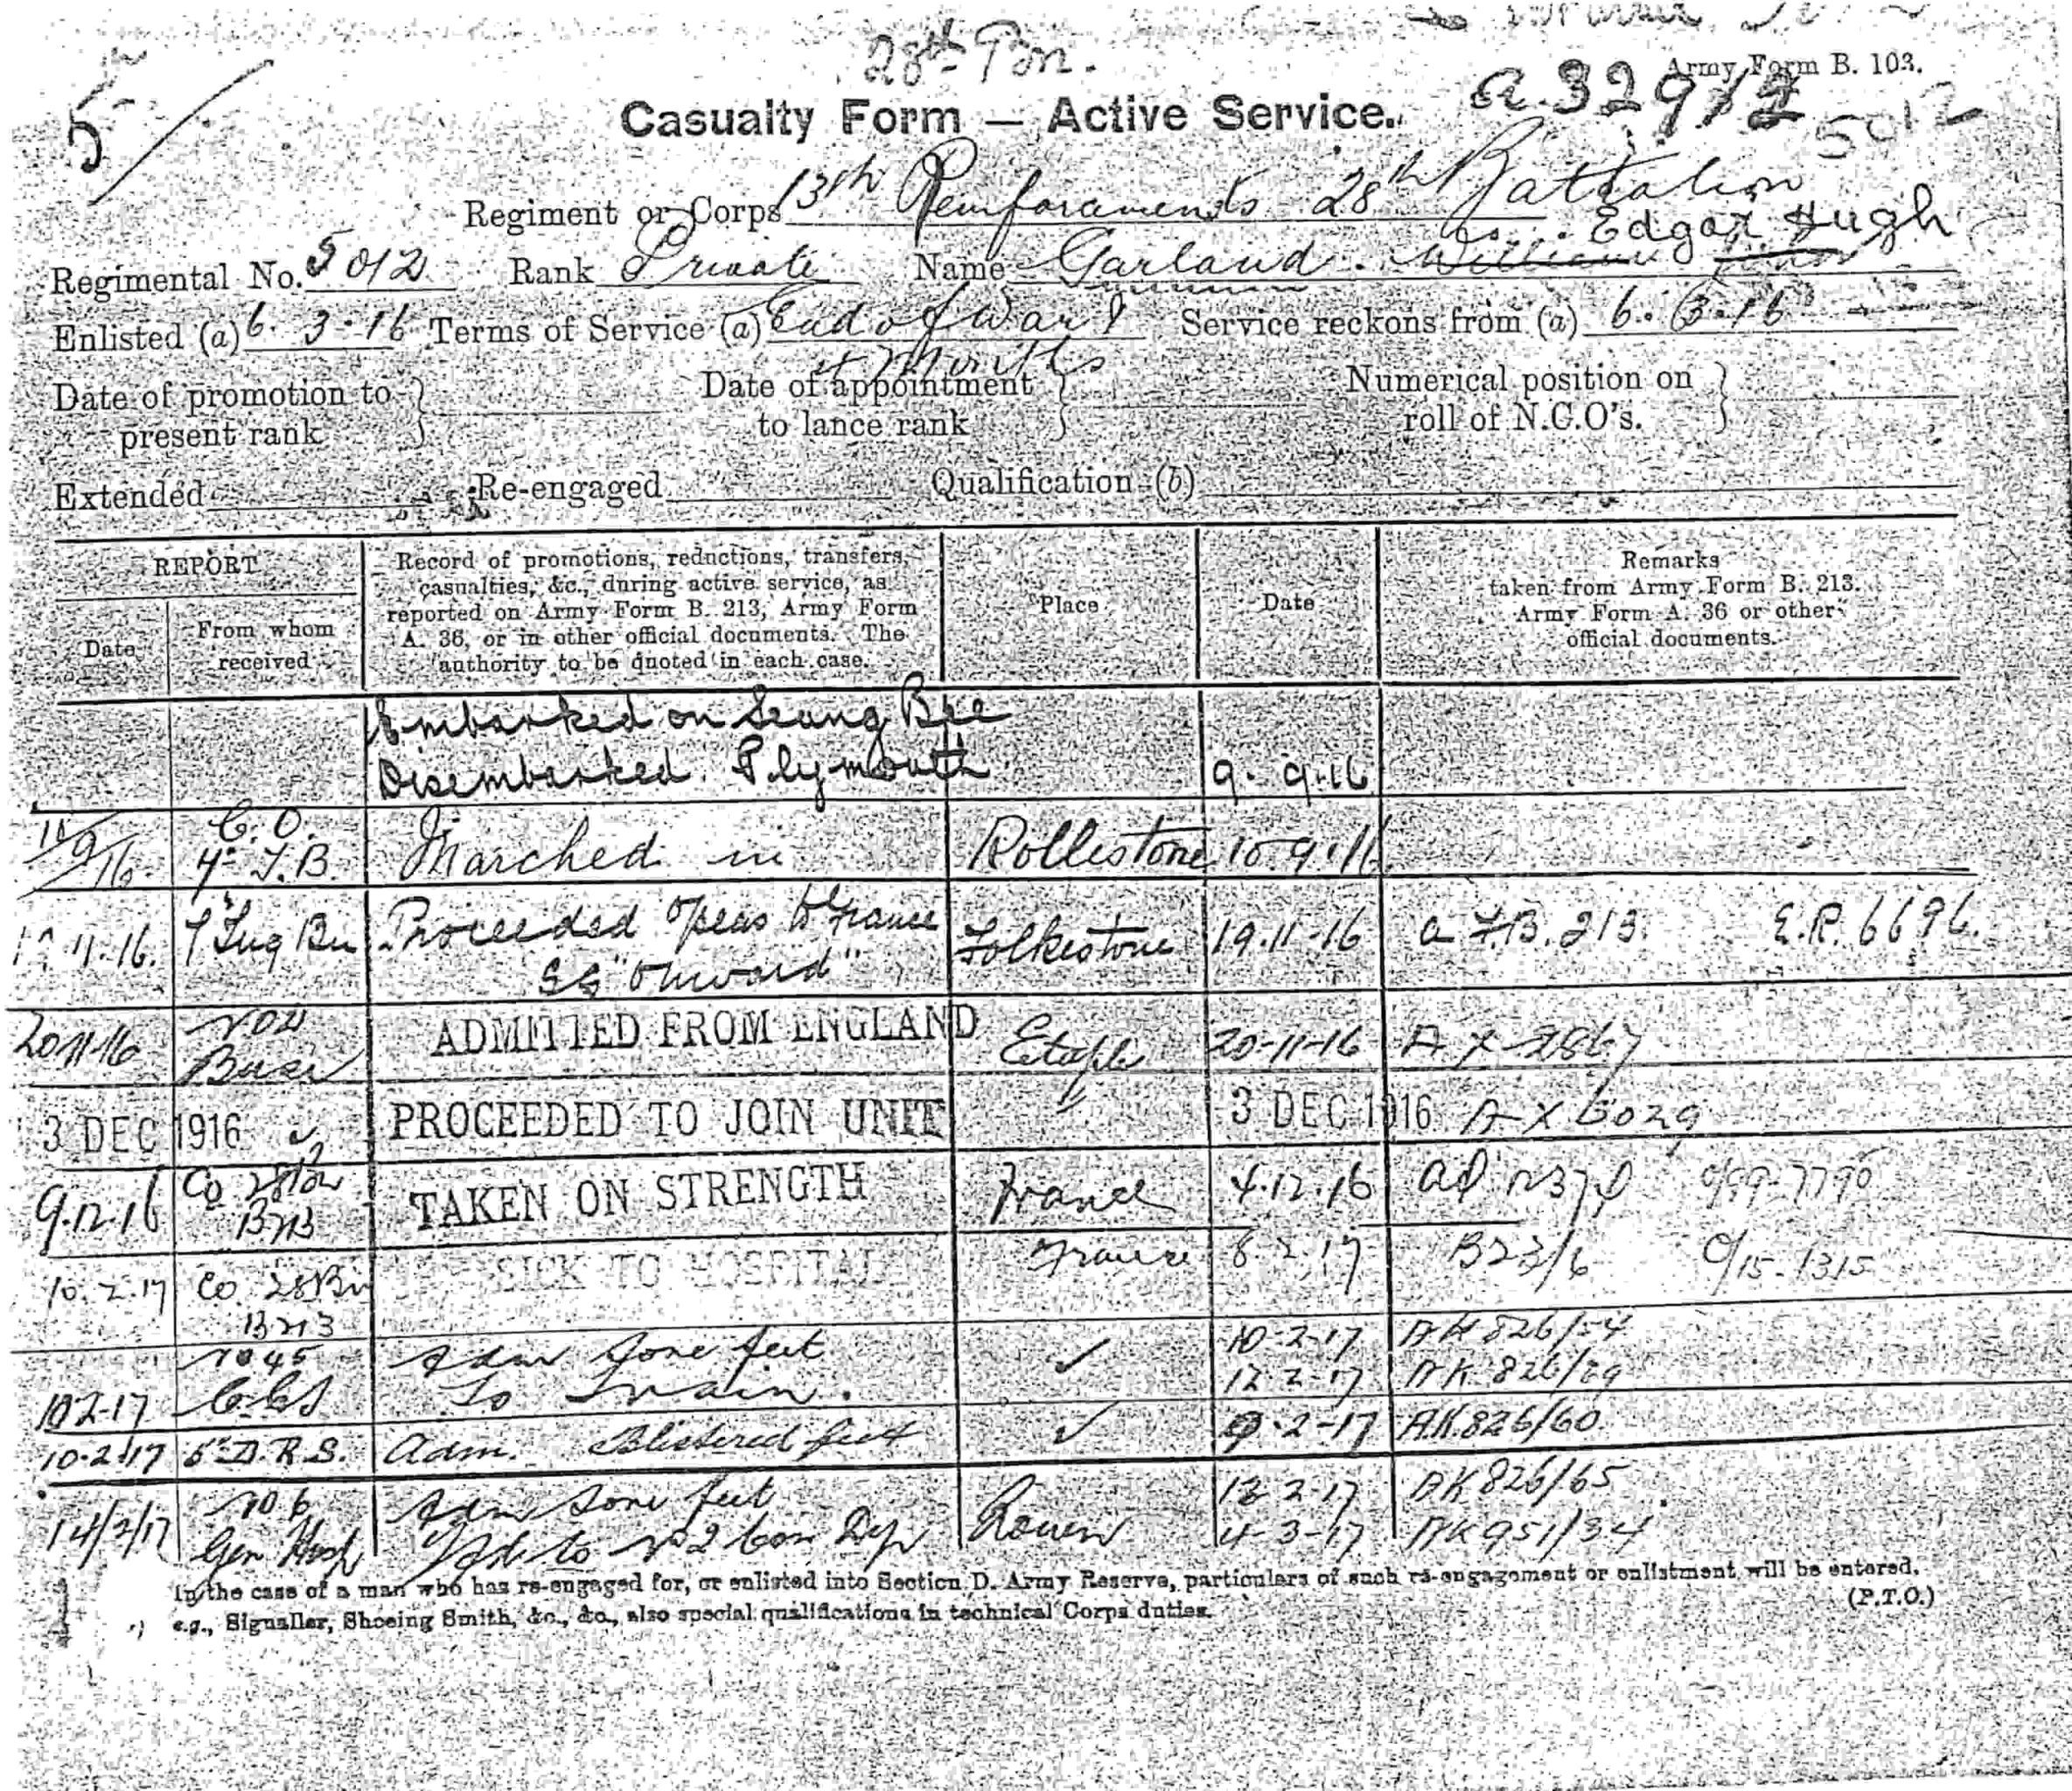 28th Bn.
Army Form B. 103.
5
Casualty Form — Active Service.
5012
Regiment or Corps 13th Reinforcements 28th Battalion
Edgar Hugh
Regimental No. 5012 Rank Private Name Garland. William
Enlisted (a) 6. 3. 16 Terms of Service (a) End of War & Service reckons from (a) 6. 3. 16
4 Months
Date of promotion to present rank
Date of appointment to lance rank
Numerical position on roll of N.C.O's.
Extended Re-engaged Qualification (b)
REPORT
Date
From whom received
Record of promotions, reductions, transfers, casualties, &c., during active service, as reported on Army Form B. 213, Army Form A. 36, or in other official documents. The authority to be quoted in each case.
Place
Date
Remarks taken from Army Form B. 213. Army Form A. 36 or other official documents.
Embarked on Seang Bee
Disembarked. Plymouth 9. 9.16
C.O.
9/16 Marched in Rollestone 10.9.16
11.16. Proceeded O'seas to France Folkestone 19.11.16 a F.B. 213. E.R. 6696.
SS "Onward"
20.11.16 Base ADMITTED FROM ENGLAND Etaples 20-11-16
3 DEC 1916 PROCEEDED TO JOIN UNIT 3 DEC 1916
9.12.16 Co 28 Bn TAKEN ON STRENGTH France 4.12.16
B213
10.2.17 Co 28 Bn SICK TO HOSPITAL France 8.2.17 B23/6 1315
B213
No 45 Adm Sore feet 10-2-17 AK 826/54
10 2-17 CCS To Train. 12-2-17 AK 826/
10.2.17 5th D.R.S. Adm. Blistered feet 9.2-17 AK826/60
No 6 Adm Sore feet Rouen 12 2-17 AK 826/65
14/2/17 Gen Hosp to No 2 Con Dep 4-3-17 AK 951/34
In the case of a man who has re-engaged for, or enlisted into Section D. Army Reserve, particulars of such re-engagement or enlistment will be entered.
(P.T.O.)
e.g., Signaller, Shoeing Smith, &c., &c., also special qualifications in technical Corps duties.